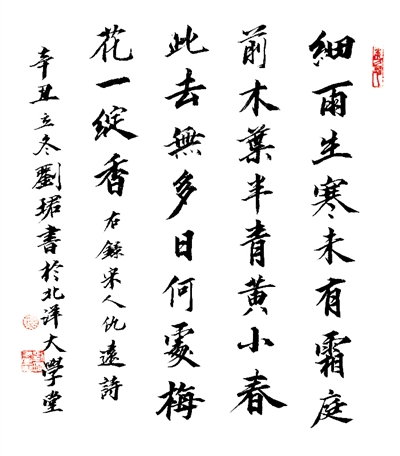 細雨生寒未有霜庭
前木葉半青黃小春
此去無多日何處梅
花一綻香右錄宋人仇遠詩
辛丑立冬劉珺書於北洋大學堂